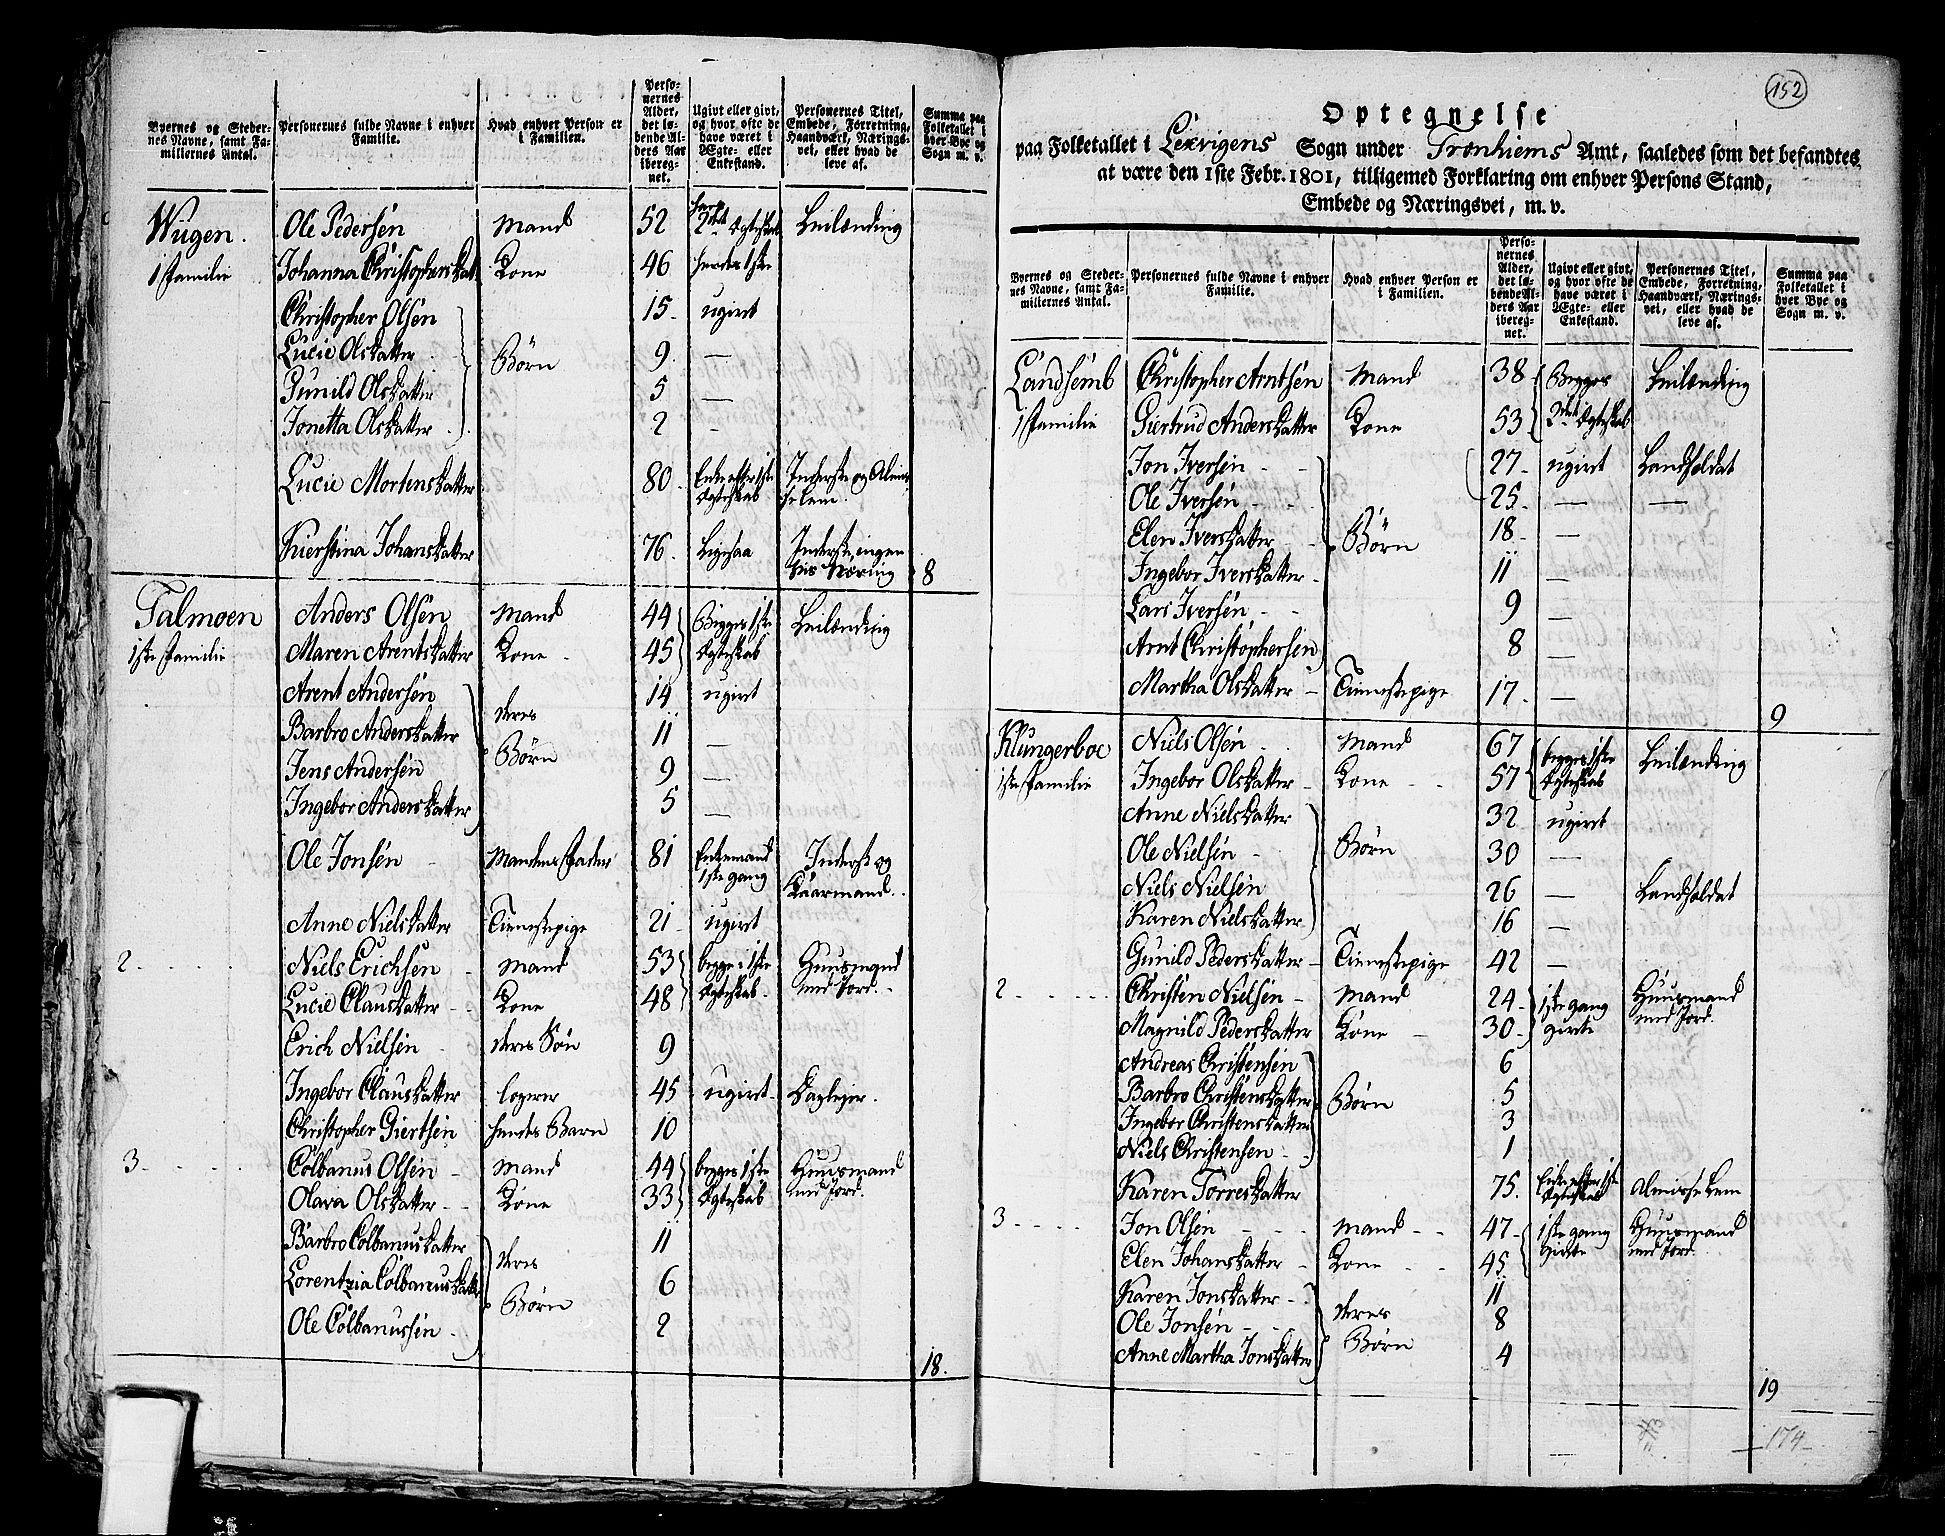 Byernes og Steder-
nes Navne, samt Fa-
miliernes Antal.
Personernes fulde Navne i enhver
Familie.
Hvad enhver Person er
i Familien.
Perso-
nernes
Alder,
det lø-
bende Al-
ders Aar
ibereg-
net.
Ugivt eller givt,
og hvor ofte de
have været i
Ægte- eller
Enkestand.
Personernes Titel,
Embede, Forretning,
Haandværk, Nærings-
vei, eller hvad de
leve af.
Summa paa
Folketallet i
hver Bye og
Sogn m. v.
Wugen. Ole Pedersen Mand 52 2det Ægteskab Leilænding
1 Familie Johanna Christophersdat Kone 46 hendes 1ste
Christopher Olsen 15. ugivt
Lucie Olsdatter 9. —
Børn
Gunild Olsdatter 5 —
Jonetta Olsdatter. 2 —
Lucie Mortensdatter 80. Enke efter 1ste Ægteskab
Kierstina Johansdatter 76. Ligesaa Inderste, ingen vis Næring 8
Talmoen Anders Olsen Mand 44 Begges 1ste Leilænding
1ste Familie Maren Arentsdatter Kone 45 Ægteskab
Arent Andersen 14 ugivt
deres
Barbro Andersdatter 11 —
Børn
Jens Andersen 9 —
Ingebor Andersdatter 5 —
Ole Jonsen Mandens Fader 81 Enkemand 1ste gang Inderst og Kaarmand.
Anne Nielsdatter Tienestepige 21 ugivt
2 Niels Erichsen Mand 53 begge i 1ste Huusmand
Lucie Clausdatter Kone 48 Ægteskab. med Jord.
Erich Nielsen deres Søn 9
Ingebor Clausdatter logerer 45 ugivt Daglejer.
Christopher Giertsen hendes Barn 10
3. Colbanus Olsen Mand 44 begges 1ste Huusmand
Olava Olsdatter Kone 33 Ægteskab med Jord.
Barbro Colbanusdatter 11
deres
Lorentzia Colbanusdatter 6
Børn
Ole Colbanussen 2
18.
152
Optegnelse
paa Folketallet i Lexvigens Sogn under Tronhiems Amt, saaledes som det befandtes
at være den 1ste Febr. 1801, tilligemed Forklaring om enhver Persons Stand,
Embede og Næringsvei, m. v.
Byernes og Steder-
nes Navne, samt Fa-
miliernes Antal.
Personernes fulde Navne i enhver
Familie.
Hvad enhver Person er
i Familien.
Perso-
nernes
Alder,
det lø-
bende Al-
ders Aar
ibereg-
net.
Ugivt eller givt,
og hvor ofte de
have været i
Ægte- eller
Enkestand.
Personernes Titel,
Embede, Forretning,
Haandværk, Nærings-
vei, eller hvad de
leve af.
Summa paa
Folketallet i
hver Bye og
Sogn m. v.
Landsemb Christopher Arntsen Mand 38 Begges Leilænding
1 Familie Giertrud Andersdatter Kone 53 2det Ægteskab
Jon Iversen 27. ugivt Landsoldat
Ole Iversen 25. — —
Elen Iversdatter 18. —
Børn
Ingebor Iversdatter 11 —
Lars Iversen 9 —
Arnt Christophersen 8 —
Martha Olsdatter Tienestepige 17. —
9
Klungerboe Niels Olsen Mand 67 begges 1ste Leilænding
1ste Familie Ingebor Olsdatter Kone 57 Ægteskab
Anne Nielsdatter 32 ugivt
Ole Nielsen Børn 30 —
Niels Nielsen 26 — Landsoldat
Karen Nielsdatter 16 —
Gunild Pedersdatter Tienestepige 42 —
2 Christen Nielsen Mand 24. 1ste gang Huusmand
Magnild Pedersdatter Kone 30. givte med Jord.
Andreas Christensen 6
Barbro Christensdatter Børn 5
Ingebor Christensdatter 3
Niels Christensen 1
Karen Torresdatter 75. Enke efter 1ste Ægteskab Almisse Lem
3 Jon Olsen Mand 47. 1ste gang Huusmand
Elen Johansdatter Kone 45 givte med Jord.
Karen Jonsdatter 11
deres
Ole Jonsen 8
Børn
Anne Martha Jonsdatter 4
19
174